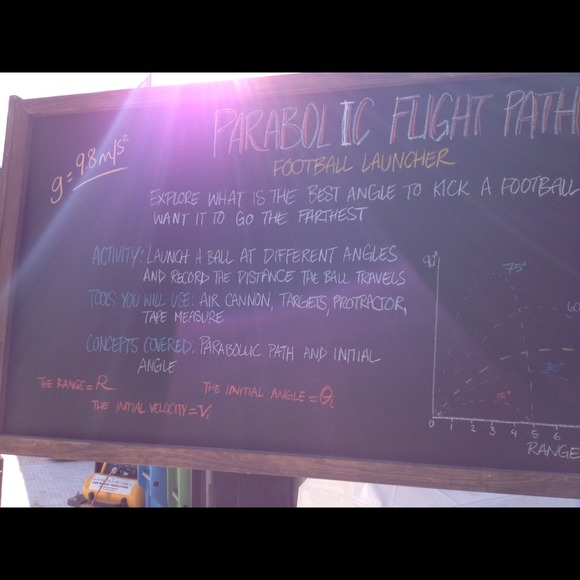 PARABOLIC FLIGHT PATH
FOOTBALL LAUNCHER
g = 9.8 m/s²
EXPLORE WHAT IS THE BEST ANGLE TO KICK A FOOTBALL
WANT IT TO GO THE FARTHEST
ACTIVITY: LAUNCH A BALL AT DIFFERENT ANGLES
AND RECORD THE DISTANCE THE BALL TRAVELS
TOOLS YOU WILL USE: AIR CANNON, TARGETS, PROTRACTOR,
TAPE MEASURE
CONCEPTS COVERED: PARABOLIC PATH AND INITIAL
ANGLE
THE RANGE = R
THE INITIAL ANGLE = θi
THE INITIAL VELOCITY = Vi
90°
75°
60
30°
15°
0 1 2 3 4 5 6
RANGE